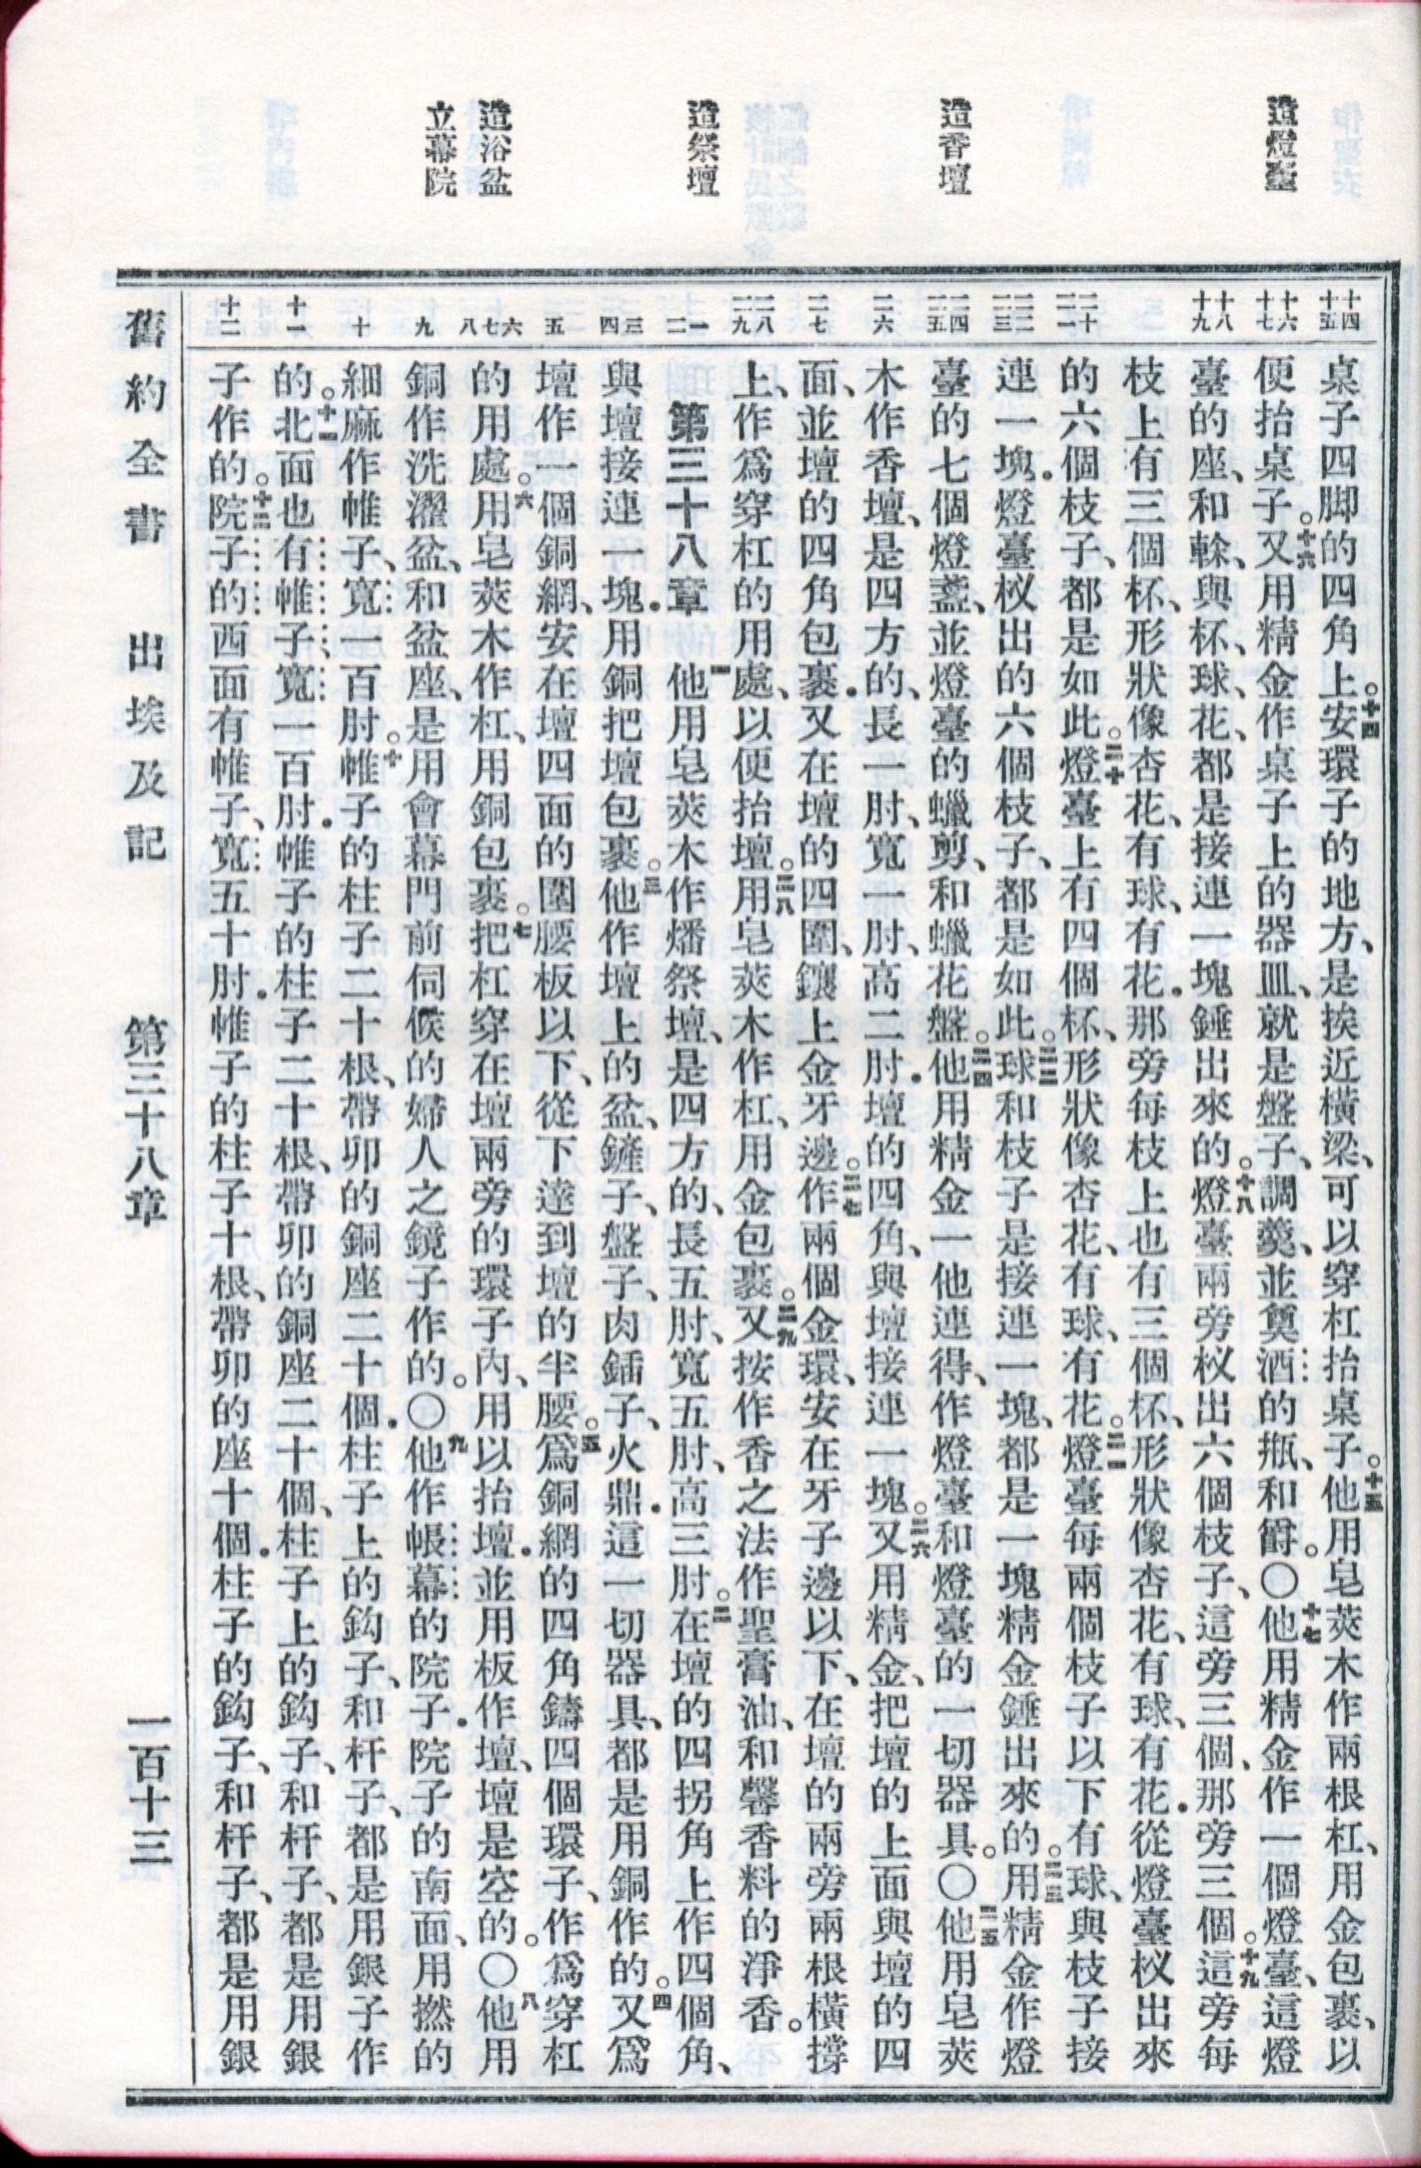 造燈臺
造香壇
造祭壇
造浴盆
立幕院
十四
十五
十六
十七
十八
十九
二十
二一
二二
二三
二四
二五
二六
二七
二八
二九
一
二
三
四
五
六
七
八
九
十
十一
十二
桌子四脚的四角上。十四安環子的地方、是挨近橫梁、可以穿杠抬桌子。十五他用皂莢木作兩根杠、用金包裹、以
便抬桌子。十六又用精金作桌子上的器皿、就是盤子、調羹、並奠酒的瓶、和爵。〇十七他用精金作一個燈臺、這燈
臺的座、和榦、與杯、球、花、都是接連一塊錘出來的。十八燈臺兩旁杈出六個枝子、這旁三個、那旁三個。十九這旁每
枝上有三個杯、形狀像杏花、有球、有花．那旁每枝上也有三個杯、形狀像杏花、有球、有花．從燈臺杈出來
的六個枝子、都是如此。二十燈臺上有四個杯、形狀像杏花、有球、有花。二一燈臺每兩個枝子以下有球、與枝子接
連一塊．燈臺杈出的六個枝子、都是如此。二二球和枝子是接連一塊、都是一塊精金錘出來的。二三用精金作燈
臺的七個燈盞、並燈臺的蠟剪、和蠟花盤。二四他用精金一他連得、作燈臺和燈臺的一切器具。〇二五他用皂莢
木作香壇、是四方的、長一肘、寬一肘、高二肘．壇的四角、與壇接連一塊。二六又用精金、把壇的上面與壇的四
面、並壇的四角包裹．又在壇的四圍、鑲上金牙邊。二七作兩個金環、安在牙子邊以下、在壇的兩旁兩根橫撐
上、作爲穿杠的用處、以便抬壇。二八用皂莢木作杠、用金包裹。二九又按作香之法作聖膏油、和馨香料的淨香。
第三十八章　一他用皂莢木作燔祭壇、是四方的、長五肘、寬五肘、高三肘。二在壇的四拐角上作四個角、
與壇接連一塊．用銅把壇包裹。三他作壇上的盆、鏟子、盤子、肉鍤子、火鼎．這一切器具、都是用銅作的。四又爲
壇作一個銅網、安在壇四面的圍腰板以下、從下達到壇的半腰。五爲銅網的四角鑄四個環子、作爲穿杠
的用處。六用皂莢木作杠、用銅包裹。七把杠穿在壇兩旁的環子內、用以抬壇．並用板作壇、壇是空的。〇八他用
銅作洗濯盆、和盆座、是用會幕門前伺候的婦人之鏡子作的。〇九他作帳幕的院子．院子的南面、用撚的
細麻作帷子、寬一百肘。十帷子的柱子二十根、帶卯的銅座二十個．柱子上的鈎子、和杆子、都是用銀子作
的。十一北面也有帷子、寬一百肘．帷子的柱子二十根、帶卯的銅座二十個、柱子上的鈎子、和杆子、都是用銀
子作的。十二院子的西面有帷子、寬五十肘．帷子的柱子十根、帶卯的座十個．柱子的鈎子、和杆子、都是用銀
舊約全書　出埃及記　第三十八章　一百十三